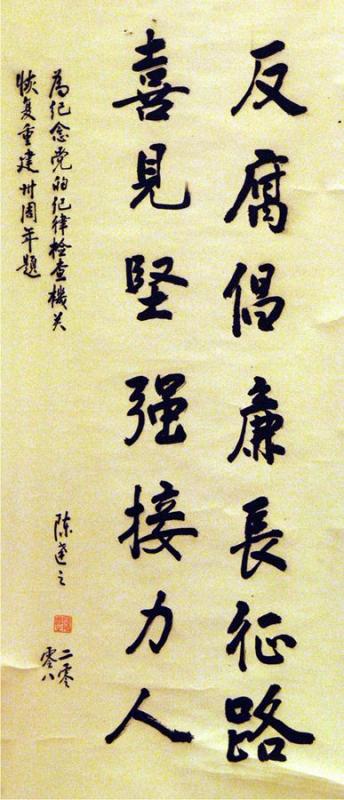 反腐倡廉長征路
喜見堅强接力人
為纪念党的纪律检查機关
恢复重建卅周年题
陈達之
二零
零八